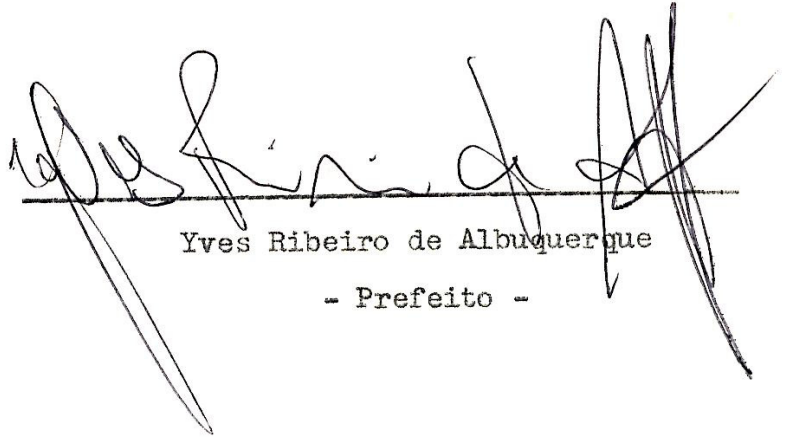 Yves Ribeiro de Albuquerque
- Prefeito -